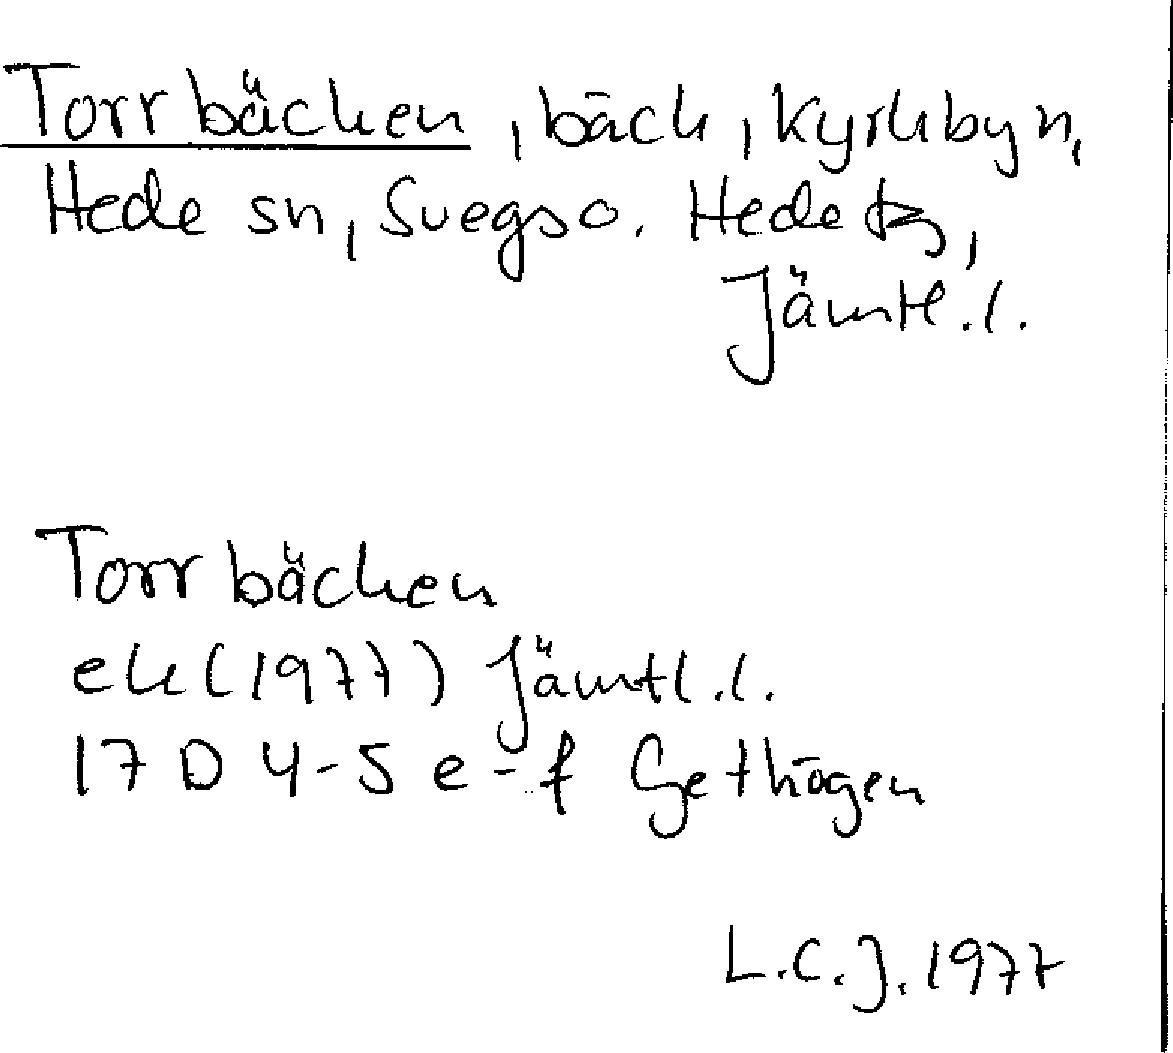 Torrbäcken, bäck, Kyrkbyn,
Hede sn, Svegs o. Hede tg,
Jämtl.l.
Torrbäcken
ek(1977) Jämtl.l.
17 D 4-5 e-f Gethögen
L.C.J. 1977